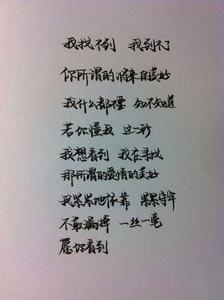 我找不到 我到不了
你所谓的将来的美好
我什么都不要 知不知道
若你懂我 这一秒
我想看到 我在寻找
那所谓的爱情的美好
我紧紧地依靠 紧紧守牢
不敢漏掉 一丝一毫
愿你看到